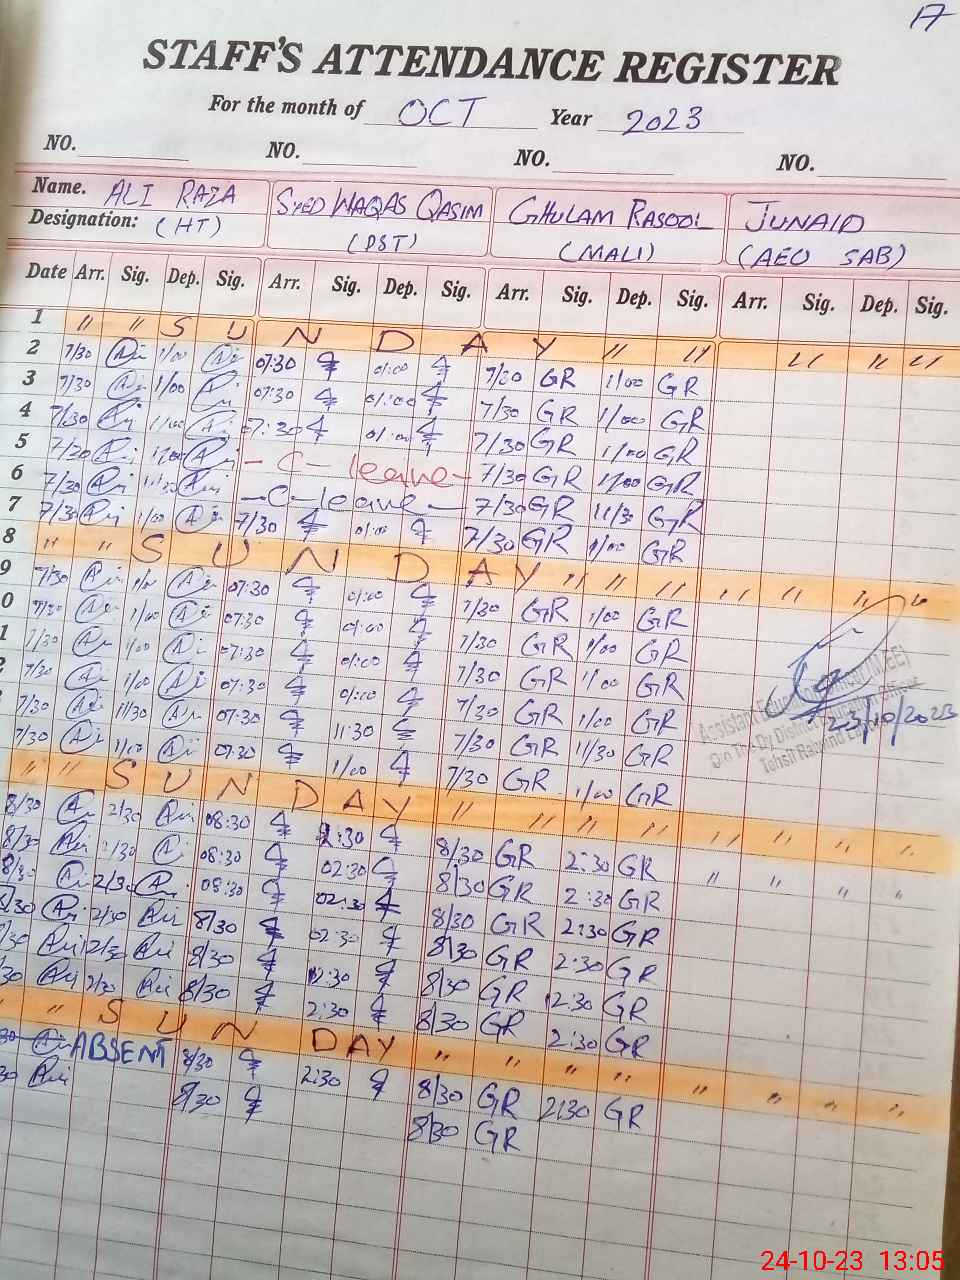 17
STAFF'S ATTENDANCE REGISTER
For the month of OCT Year 2023
NO. NO. NO. NO.
Name. ALI RAZA SYED WAQAS QASIM GHULAM RASOOL JUNAID
Designation: (HT) (PST) (MALI) (AEO SAB)
Date Arr. Sig. Dep. Sig. Arr. Sig. Dep. Sig. Arr. Sig. Dep. Sig. Arr. Sig. Dep. Sig.
1 " " S U N D A Y " " " " "
2 7/30 Ali 1/00 Ali 07:30 01:00 7/30 GR 1/00 GR
3 7/30 Ali 1/00 Ali 07:30 01:00 7/30 GR 1/00 GR
4 7/30 Ali 1/00 Ali 07:30 01:00 7/30 GR 1/00 GR
5 7/30 Ali 1/00 Ali - C - leave - 7/30 GR 1/00 GR
6 7/30 Ali 11/30 Ali - C - leave - 7/30 GR 11/30 GR
7 7/30 Ali 1/00 Ali 7/30 01:00 7/30 GR 1/00 GR
8 " " S U N D A Y " " " " " " "
9 7/30 Ali 1/00 Ali 07:30 01:00 7/30 GR 1/00 GR
0 7/30 Ali 1/00 Ali 07:30 01:00 7/30 GR 1/00 GR
1 7/30 Ali 1/00 Ali 07:30 01:00 7/30 GR 1/00 GR
7/30 Ali 1/00 Ali 07:30 01:00 7/30 GR 1/00 GR
7/30 Ali 11/30 Ali 07:30 11:30 7/30 GR 11/30 GR
7/30 Ali 1/00 Ali 07:30 1/00 7/30 GR 1/00 GR
Assistant Education Officer
23/10/2023
O/o The Dy District Education Officer
Tehsil Raiwind
" " S U N D A Y " " " " " " " "
8/30 Ali 2/30 Ali 08:30 2:30 8/30 GR 2:30 GR
8/30 Ali 2/30 Ali 08:30 02:30 8/30 GR 2:30 GR " " " "
8/30 Ali 2/30 Ali 08:30 02:30 8/30 GR 2:30 GR
8/30 Ali 2/30 Ali 8/30 02:30 8/30 GR 2:30 GR
/30 Ali 2/30 Ali 8/30 2:30 8/30 GR 2:30 GR
/30 Ali 2/30 Ali 8/30 2:30 8/30 GR 2:30 GR
" " S U N D A Y " " " " " " " "
30 Ali ABSENT 8/30 2:30 8/30 GR 2:30 GR
30 Ali 8/30 8/30 GR
24-10-23 13:05